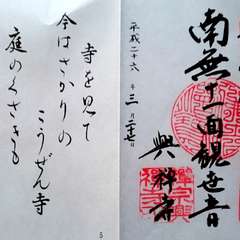 南無十一面観世音
平成二十六年三月二十三日
興禅寺
寺を見て
今はさかりの
こうぜん寺
庭のくさきも
5